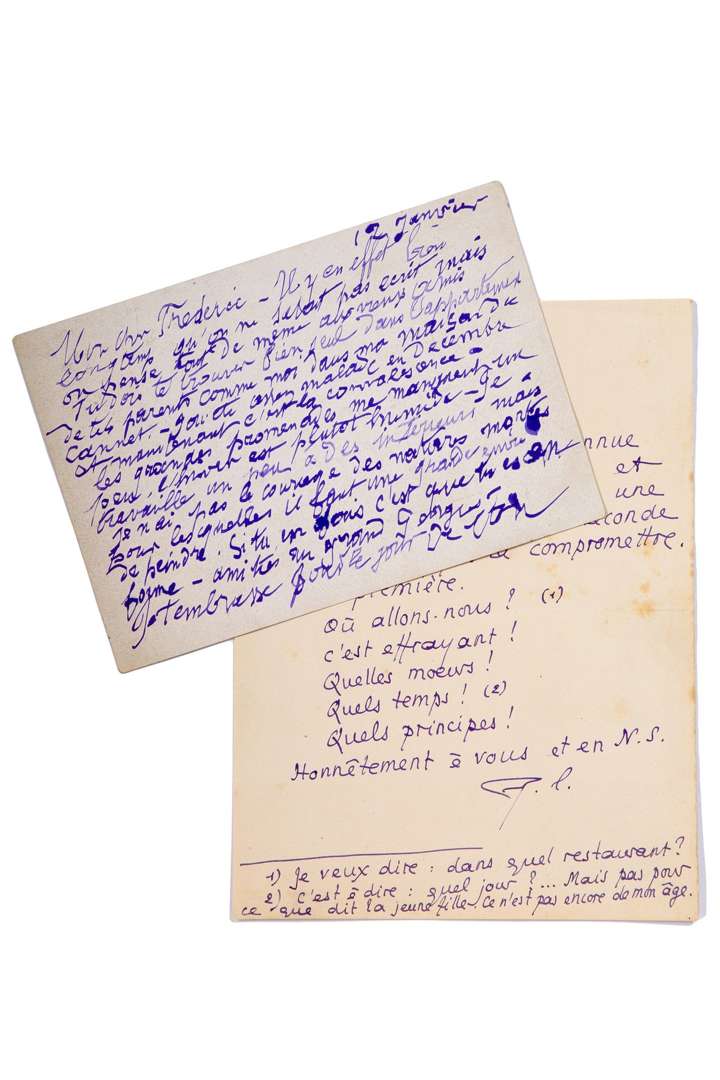 12 Janvier
Mon cher Frédéric - Il y en effet bien
longtemps qu'on ne s'était pas écrit mais
on pense tout de même aux vieux amis
Tu dois te trouver bien seul dans l'appartement
de tes parents comme moi dans ma maison du
Cannet. - J'ai été malade en Décembre
et maintenant c'est la convalescence.
les grandes promenades me manquent un
peu. l'hiver est plutôt humide - Je
travaille un peu à des intérieurs mais
je n'ai pas le courage des natures mortes
pour lesquelles il faut une grande envie
de peindre. Si tu es
forme - amitiés au grand Georges
Je t'embrasse
nnue
et
une
seconde
compromettre.
première.
Où allons-nous ? (1)
c'est effrayant !
Quelles moeurs !
Quels temps ! (2)
Quels principes !
Honnêtement à vous et en N.S.
1) Je veux dire : dans quel restaurant ?
2) C'est à dire : quel jour ?... Mais pas pour
ce que dit la jeune fille. Ce n'est pas encore de mon âge.